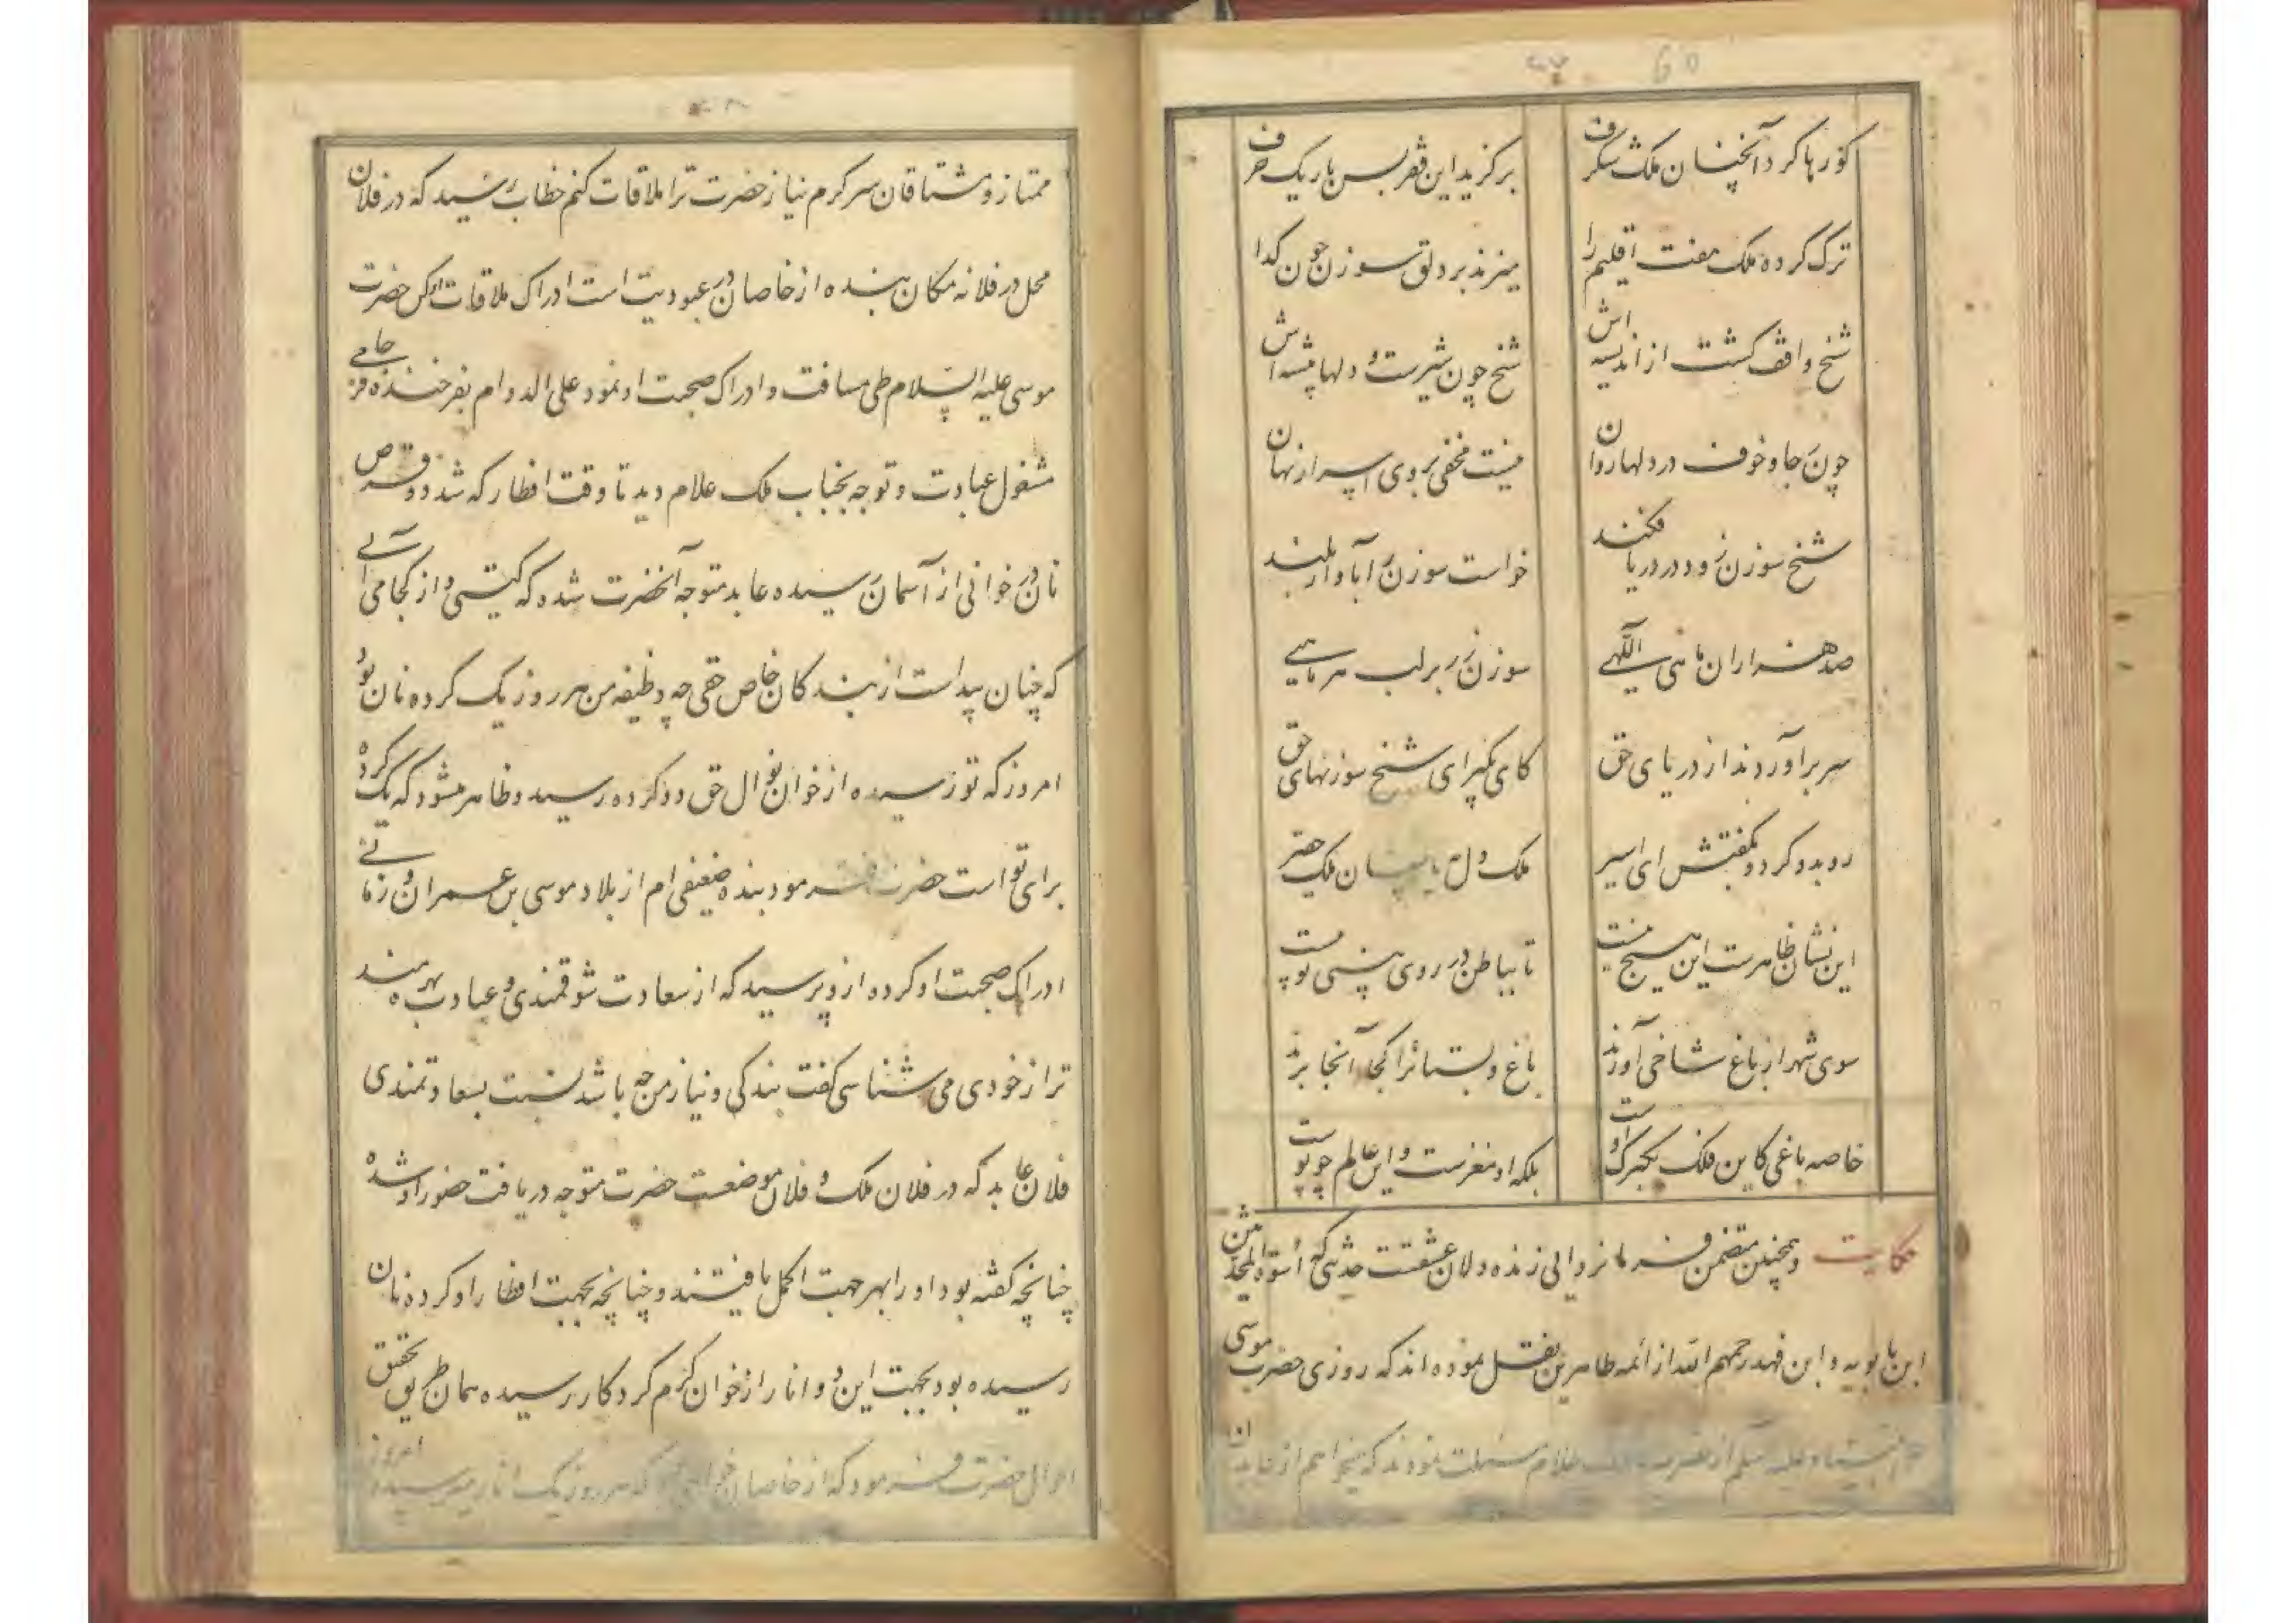 60
کو رها کرد آنچنان ملک شگرف
برگزید این فقر بس باریک حرف
ترک کرده ملک هفت اقلیم را
میزند بر دلق سوزن چون گدا
شیخ واقف گشت از اندیشه اش
شیخ چون شیرست و دلها بیشه اش
چون رجا و خوف در دلها روان
نیست مخفی بروی اسرار نهان
شیخ سوزن زود در دریا فکند
خواست سوزن را بآواز بلند
صد هزاران ماهی اللهی
سوزن زر بر لب هر ماهیی
سر برآوردند از دریای حق
کای بگیر ای شیخ سوزنهای حق
رو بدو کرد و بگفتش ای امیر
ملک دل به یا چنان ملک حقیر
این نشان ظاهرست این هیچ نیست
تا بباطن در روی بینی تو بیست
سوی شهر از باغ شاخی آورند
باغ و بستانرا کجا آنجا برند
خاصه باغی کاین فلک یکبرگ اوست
بلکه او مغزست و این عالم چو پوست
حکایت و همچنین متضمن فرمانروایی زنده دلان عشقت حدیثی که اسوة المحدثین
ابن بابویه و ابن فهد رحمهم الله از ائمه طاهرین نقل نموده اند که روزی حضرت موسی
علیه سلم از حضرت ملک علام مسئلت نمودند که میخواهم از عابدان
ممتاز و مشتاقان سرگرم نیاز حضرت ترا ملاقات کنم خطاب رسید که در فلان
محل در فلانه مکان بنده از خاصان در عبودیت است ادراک ملاقات او کن حضرت
موسی علیه السلام طی مسافت و ادراک صحبت او نمود علی الدوام بفرخنده فرجامی
مشغول عبادت و توجه بجناب ملک علام دید تا وقت افطار که شد دو قرص
نان در خوانی از آسمان رسیده عابد متوجه آنحضرت شده که کیستی و از کجا می آئی
که چنان پیداست از بندگان خاص حقی چه وظیفه من هر روز یک کرده نان بود
امروز که تو رسیده از خوان نوال حق دو کرده رسید و ظاهر میشود که یک کرده
برای تو است حضرت فرمود بنده ضعیفی ام از بلاد موسی بن عمران و زمانی
ادراک صحبت او کرده ازو پرسید که از سعادت شوقمندی و عبادت بهره مند
تر از خودی می شناسی گفت بندگی و نیاز من چه باشد نسبت بسعادتمندی
فلان عابد که در فلان ملک و فلان موضعست حضرت متوجه دریافت حضور او شده
چنانچه گفته بود او را بهر جهت اکمل یافتند و چنانچه بجهت افطار او کرده نان
رسیده بود بجهت این دو انار از خوان کرم کردگار رسیده همان طریق تحقیق
احوال حضرت فرمود که از خاصان که هر روز یک انار میرسیده امروز